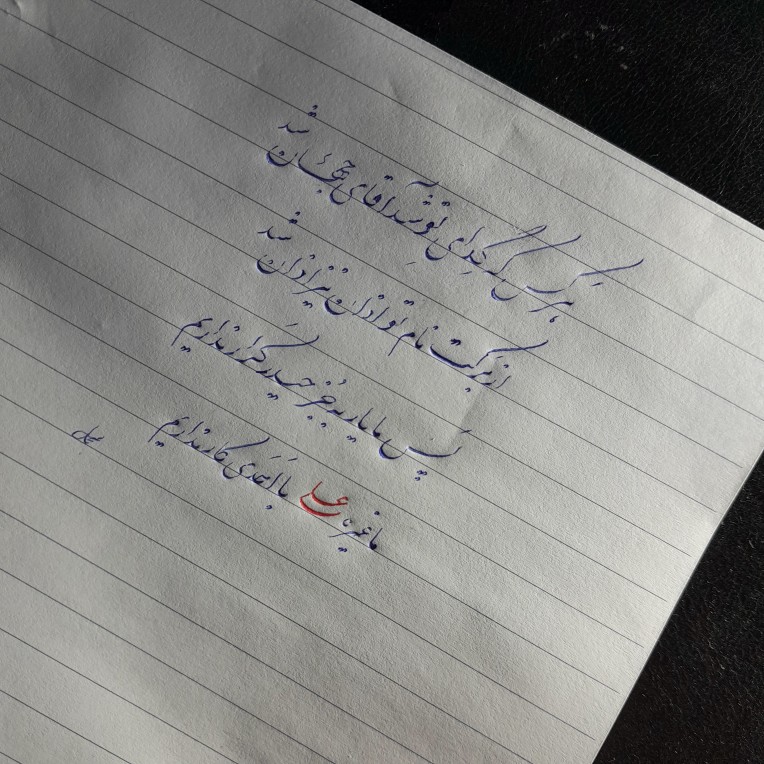 هر کس که گدای تو شد آقای جهان شد
از برکت نام تو اذان نیز اذان شد
پس ما یار به جز حیدر کرار نداریم
ما غیر علی با احدی کار نداریم